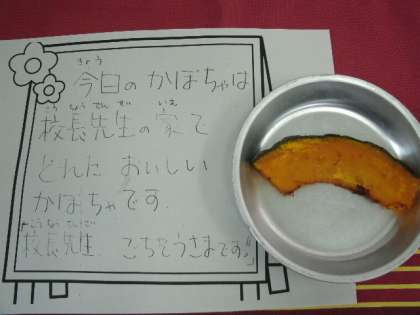 きょう
今日のかぼちゃは
こうちょうせんせい いえ
校長先生の家で
とれた おいしい
かぼちゃです.
こうちょうせんせい
校長先生. ごちそうさまです!!